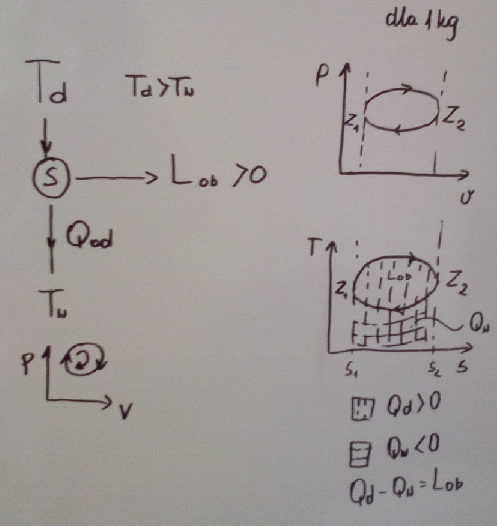 dla 1kg
Td
Td>TN
S
Lob >0
Qod
TN
P
V
P
Z1
Z2
v
T
Lob
Z1
Z2
QN
s1
s2
s
Qd>0
QN<0
Qd-QN=Lob